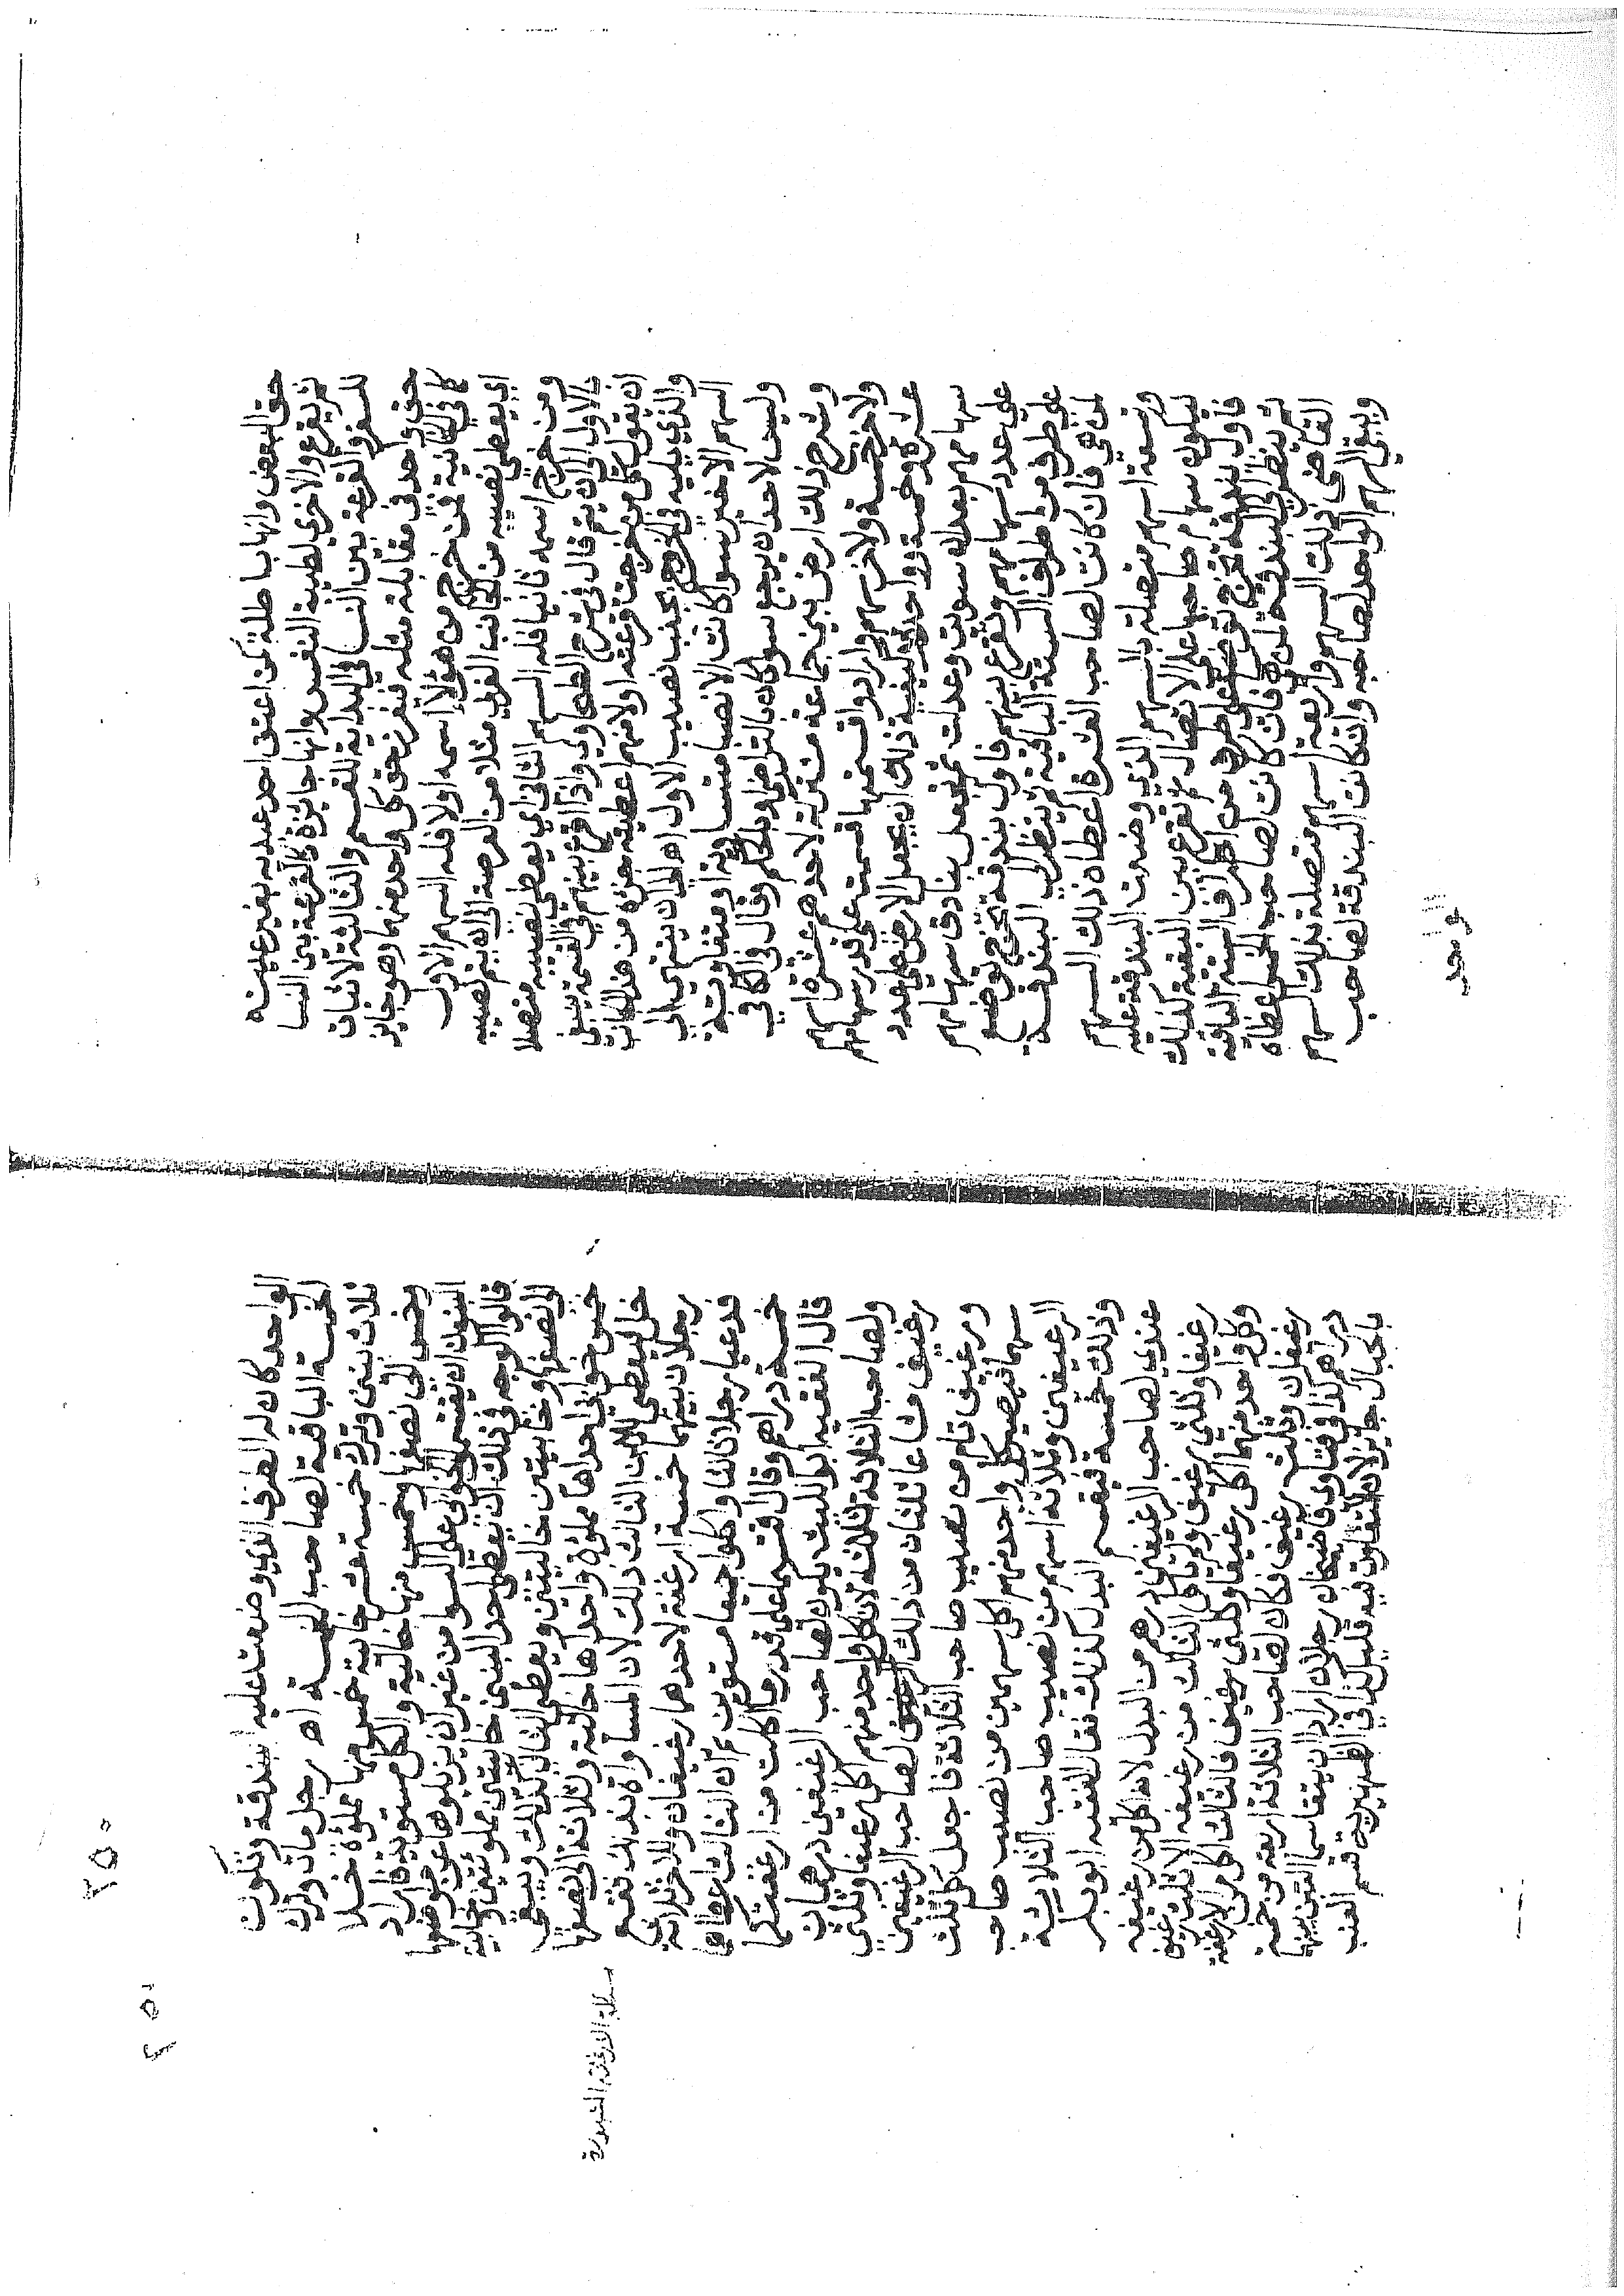 حق البعض وانها باطلة كمن اعتق احد عبديه بغير عينه
ثم يقرع والاخرى لطيبة النفس وانها جائزة كالقرعة بين النسا
للسفر والقرعة بين النسا في البداية للقسم والثالثة لاثبات
حق واحد في مقابلة مثله فيفرز حق كل واحد منهما وهو جائز
كما في الخانية فمن خرج من هؤلا اسمه اولا فله السهم الاول
اي يعطى نصيبه من الجانب الغربي مثلا من العرصة الى ان يتم نصيبه
ومن خرج اسمه ثانيا فله السهم الثاني اي يعطى نصيبه متصلا
بالاول الى ان يتم قال في شرح الطحاوي واذا اقرع بينهم في القسمة ينبغي
ان يقول كل من خرجت قرعته اولا منهم اعطيه جزء من هذا الجانب
والذي يليه في الخروج بجنب نصيب الاول اهـ الى ان ينتهي الى
السهم الاخير سوا كانت الانصبا متساوية او متفاوتة
وليس لاحد ان يرجع سوا كان بالتراضي او بالحكم وقال في الكافي
وشرح ذلك ارض بين جماعة مشتركة لاحدهم عشرة اسهم
ولاخر خمسة ولاخر سهم وارادوا قسمتها قسمت على قدر سهامهم
عشرة وخمسة وواحد وكيفية ذلك ان يجعل الارض على عدد
سهامهم بعد ان سويت وعدلت ثم يجعل بنادق سهامهم
على عدد سهامهم ويقرع بينهم فاول بندقة تخرج توضع
على طرف من اطراف الستة الباقية ثم ينظر الى البندقة
لمن هي فان كانت لصاحب العشرة اعطاه ذلك السهم
وتسعة اسهم متصلة بالسهم الذي وضعت البندقة عليه
ليكون سهام صاحبها على الاتصال ثم يقرع بين البقية كذلك
فاول بندقة تخرج توضع على طرف من اطراف الستة الباقية
ثم ينظر الى البندقة لمن هي فان كانت لصاحب الخمسة اعطاه
القاضي ذلك السهم واربعة اسهم متصلة بذلك السهم
ويبقى السهم الواحد لصاحبه وان كانت البندقة لصاحب
الواحد
الواحد كان له الطرف الذي وضعت عليه البندقة وتكون
الخمسة الباقية لصاحب الخمسة اهـ رجل مات وترك
ثلاث بنين وترك خمسة عشر خابية خمس منها مملوءة خلا
وخمس الى نصفها وخمس منها خالية والكل مستوية فاراد
البنون ان يقتسموا الخوابي على السوا من غير ان يزيلوها عن مواضعها
قالوا الوجه في ذلك ان يعطى احد البنين خابيتين مملوءتين وخابية
الى نصفها وخابيتين خاليتين ويعطى الثاني كذلك ويبقى
خمس خوابي احداها مملوءة واحداها خالية وثلاثة الى نصفها
خل فيعطى للابن الثالث ذلك لان المساواة بذلك تقع
رجلان بينهما خمسة ارغفة لاحدهما رغيفان وللاخر ثلاثة
فدعيا رجلا ثالثا واكلوا جميعا مستوين ثم ان الثالث اعطاهما
خمسة دراهم وقال اقتسماها على قدر ما اكلت من ارغفتكما
قال الفقيه ابو الليث يكون لصاحب الرغيفين درهمان
ولصاحب الثلاثة ثلاثة لان كل واحد منهم اكل رغيفا وثلثي
رغيف مشاعا ثلثان من ذلك الرغيف لصاحب الرغيفين
ورغيف تام من نصيب صاحب الثلاثة فاجعل كل ثلث
سهما فيصير كل واحد منهم اكل سهمين من نصيب صاحب
الرغيفين وثلاثة اسهم من نصيب صاحب الثلاثة
وذلك خمسة فيقسم البدل كذلك فقال الفقيه ابو بكر
عندي لصاحب الرغيفين درهم من البدل لانه اكل من رغيفيه
رغيفا وثلثي رغيف ولم ياكل الثالث من رغيفيه الا ثلث رغيف
وكل واحد منهما اكل رغيفا وثلثي رغيف فالثالث اكل من الارغفة
رغيفا وثلثي رغيف فكان لصاحب الثلاثة اربعة من خمسة
دراهم كذا في فتاوى قاضيخان رجلان ارادا ان يتقاسما التبن بينهما
بالحبال جاز لان التفاوت فيه قليل كذا في الظهيرية قسم العنب
مسئلة الارغفة الشهيرة
٢٥٠
٢٥١